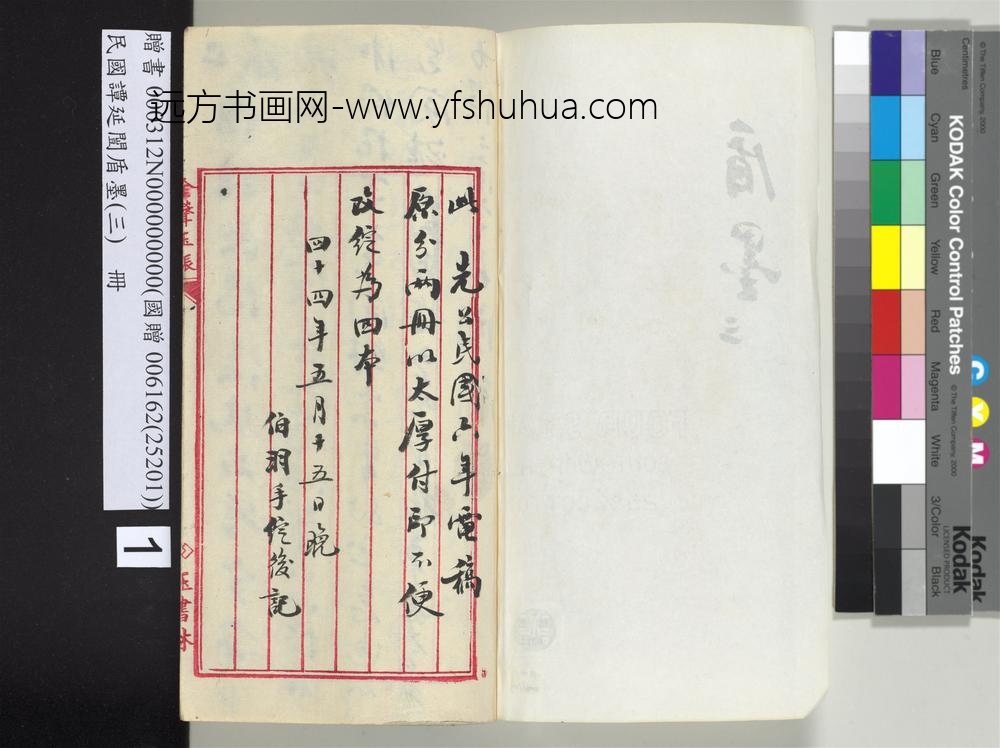 此 先公民國六年電稿
原分兩冊以太厚付印不便
改綻為四本
四十四年五月十五日晚
伯羽手綻後記
盾墨 三
贈書 0000312N000000000(國贈 006162(25201))
民國譚延闓盾墨(三) 冊
1
远方书画网-www.yfshuhua.com
KODAK Color Control Patches
© The Tiffen Company, 2000
Centimetres
Blue
Cyan
Green
Yellow
Red
Magenta
White
3/Color
Black
© The Tiffen Company, 2000
Kodak
LICENSED PRODUCT
Kodak
C
Y
M